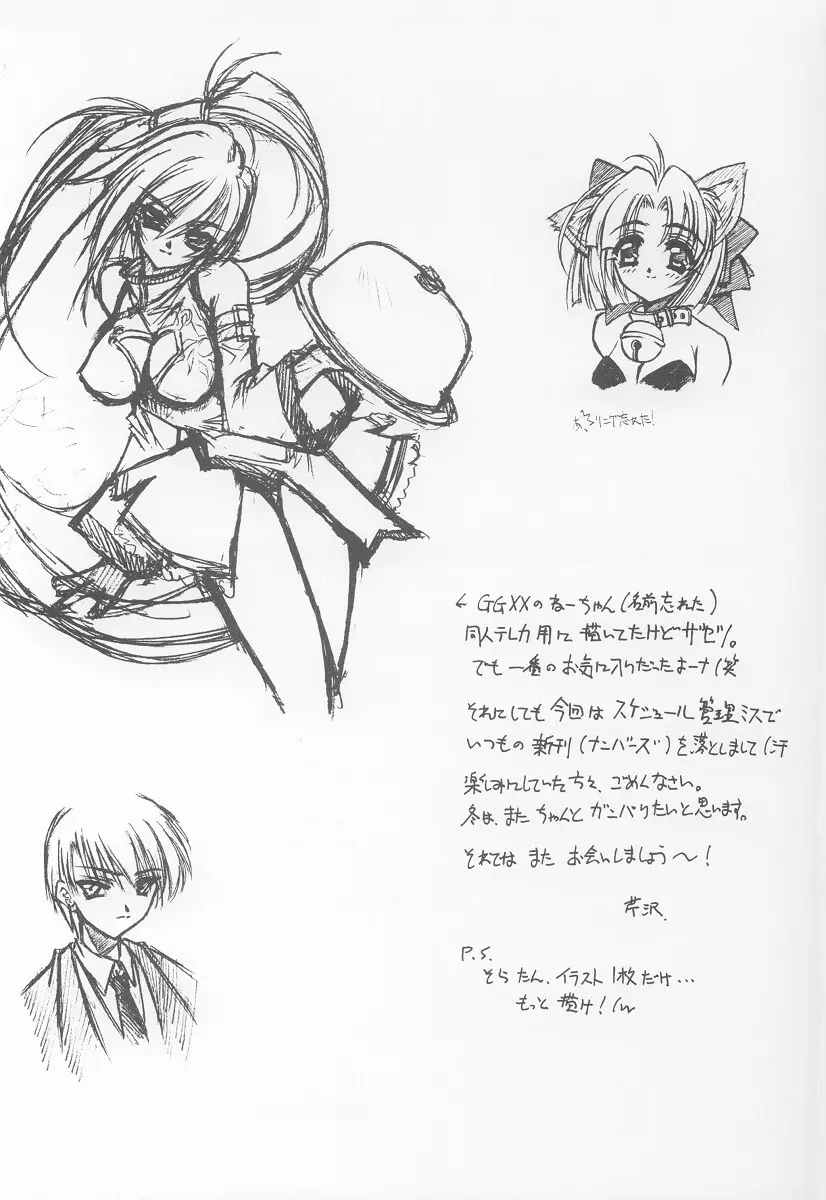 あっ、シリニゴ忘れた!
← GGXXのねーちゃん(名前忘れた)
同人テレカ用に描いてたけどザセツ。
でも一番のお気に入りだったよーナ(笑
それにしても今回はスケジュール管理ミスで
いつもの新刊(ナンバーズ)を落としまして(汗
楽しみにしていた方々、ごめんなさい。
冬は、またちゃんとガンバりたいと思います。
それではまたお会いしましょう〜!
芹沢.
P.S.
そらたん、イラスト1枚だけ...
もっと描け!(w